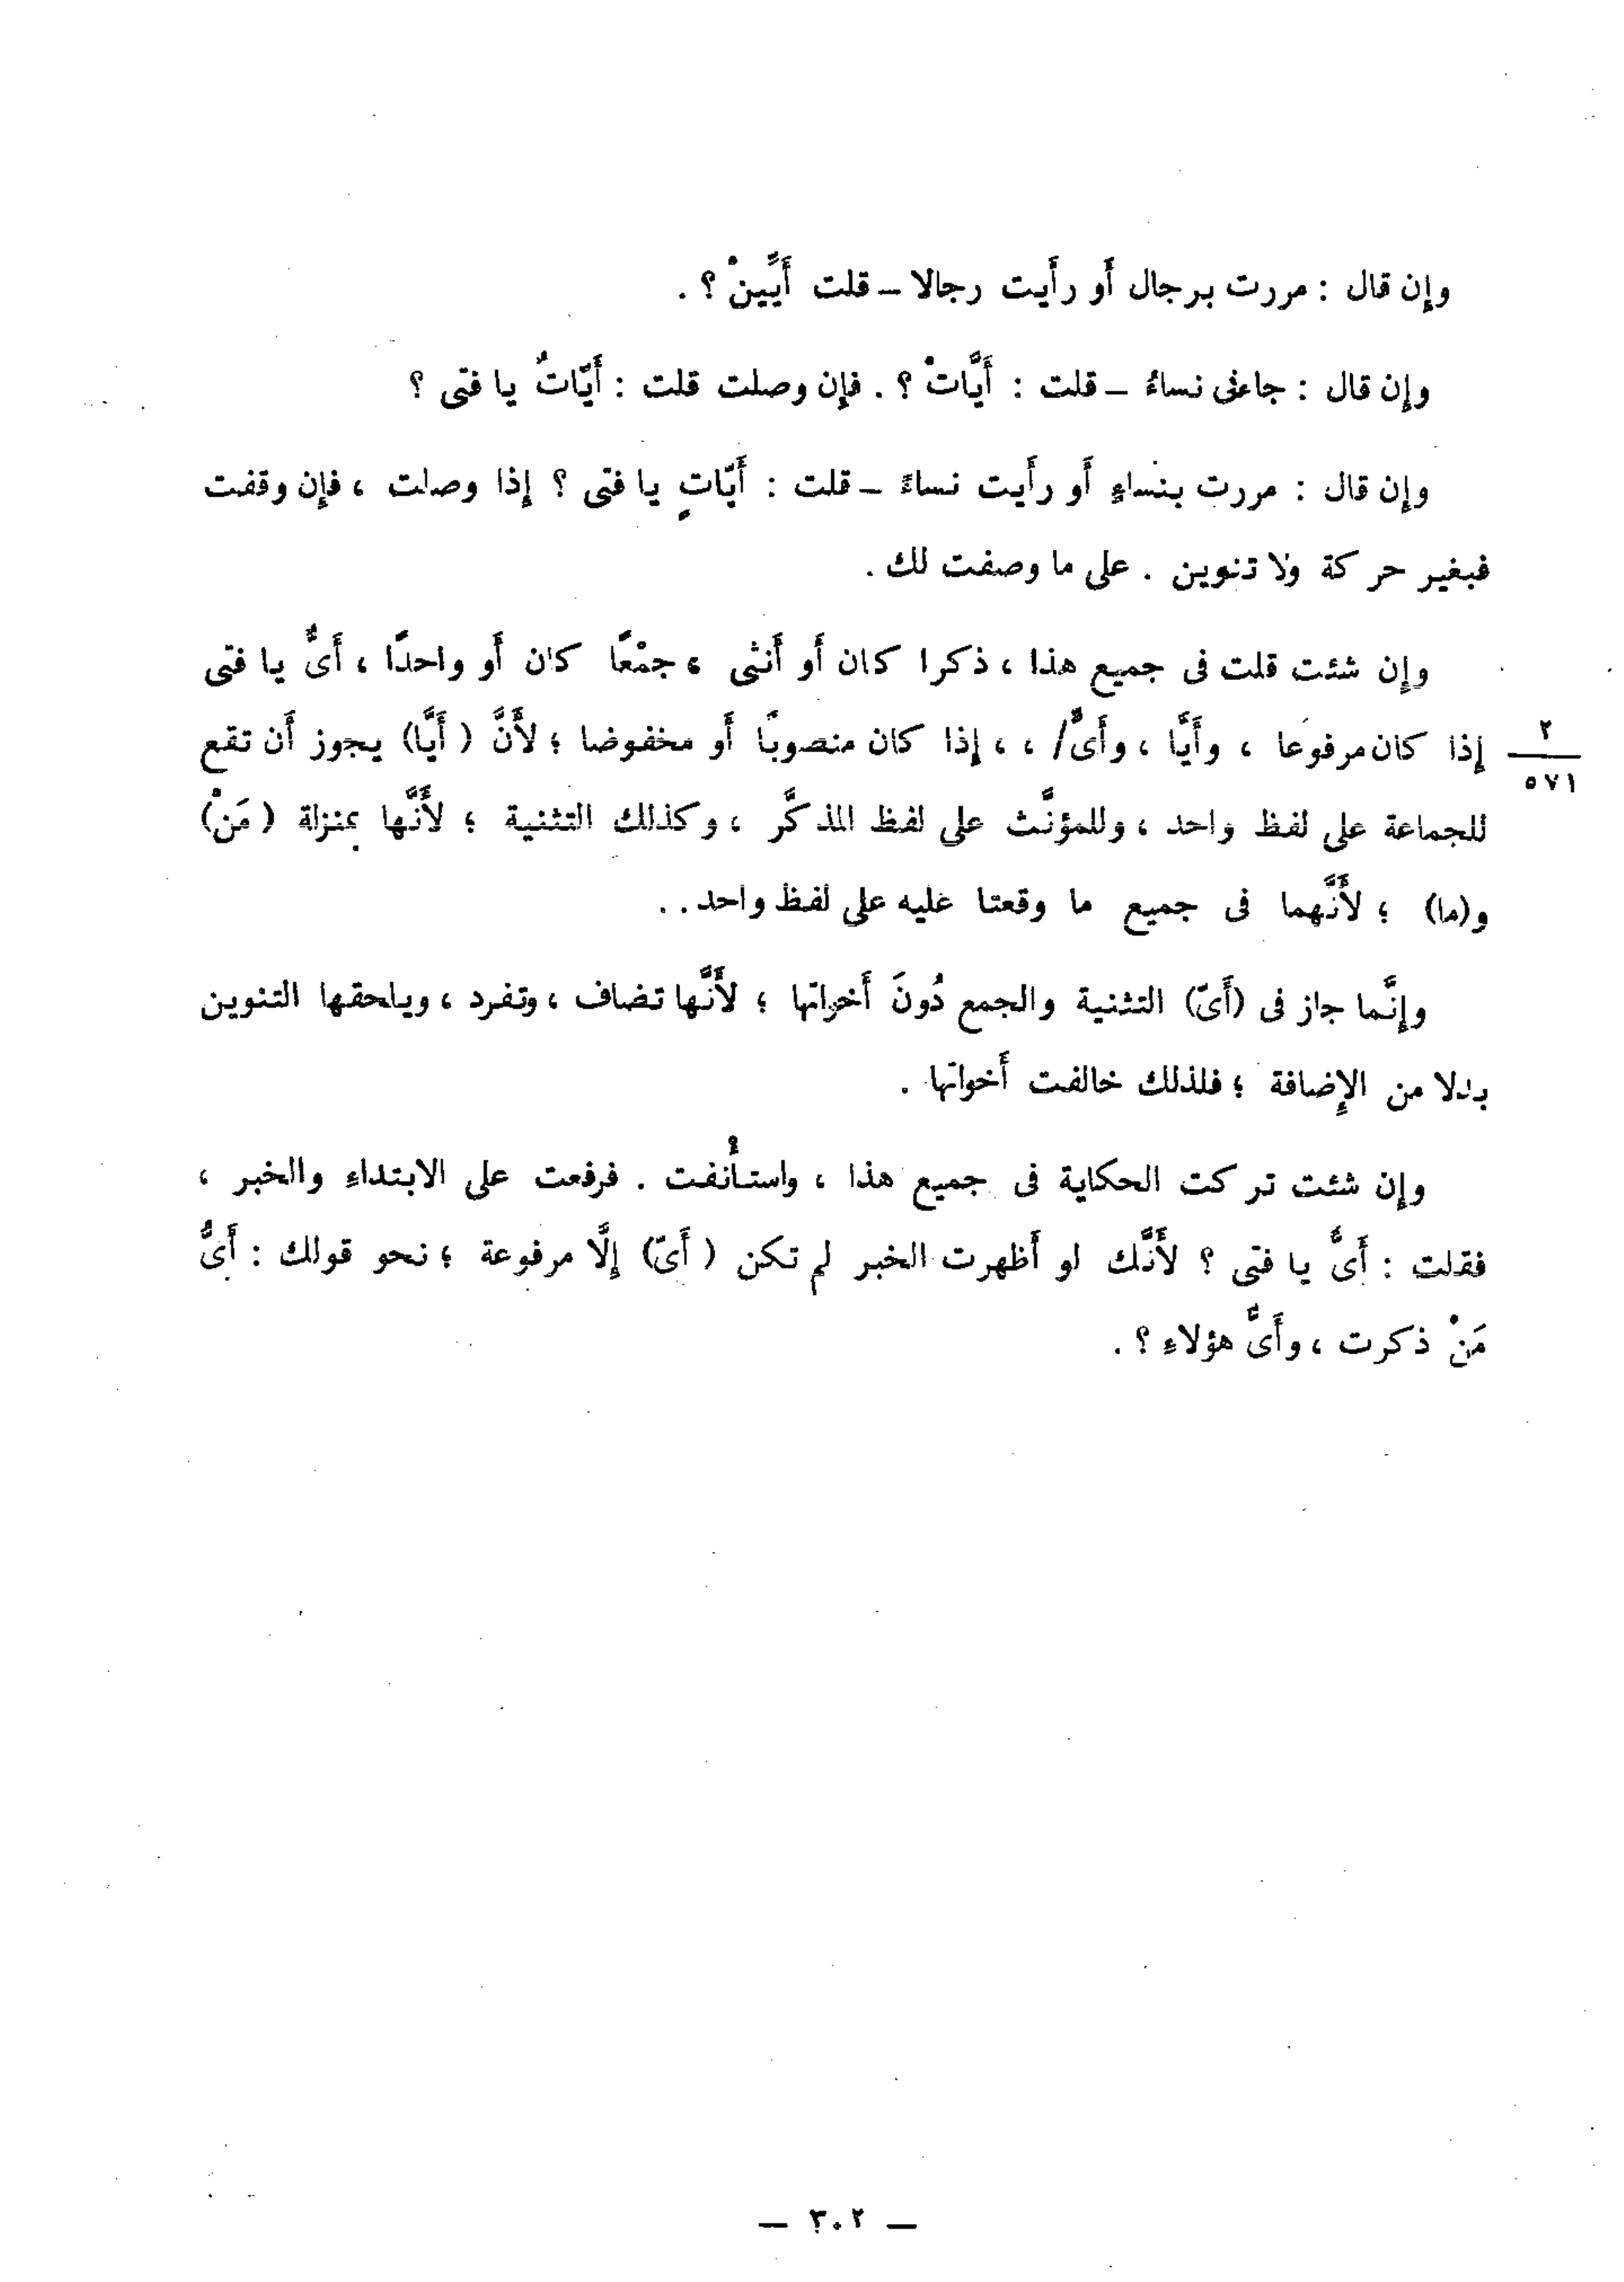 وإن قال : مررت برجال أو رأيت رجالا – قلت أَيِّينْ ؟ .
وإن قال : جاءنى نساءٌ – قلت : أَيَّاتْ ؟ . فإن وصلت قلت : أَيّاتٌ يا فتى ؟
وإن قال : مررت بنساءٍ أو رأيت نساءً – قلت : أَيّاتٍ يا فتى ؟ إذا وصلت ، فإن وقفت
فبغير حركة ولا تنوين . على ما وصفت لك .
وإن شئت قلت فى جميع هذا ، ذكرا كان أو أنثى ، جمْعًا كان أو واحدًا ، أَىٌّ يا فتى
إذا كان مرفوعا ، وأَيًّا ، وأَىٍّ/ ، ، إذا كان منصوبًا أو مخفوضا ؛ لأَنَّ ( أَيًّا) يجوز أن تقع
٢
٥٧١
للجماعة على لفظ واحد ، وللمؤنَّث على لفظ المذكَّر ، وكذلك التثنية ؛ لأَنَّها بمنزلة ( مَنْ)
و(ما) ؛ لأَنَّهما فى جميع ما وقعتا عليه على لفظ واحد . .
وإنَّما جاز فى (أَىّ) التثنية والجمع دُونَ أَخواتها ؛ لأَنَّها تضاف ، وتفرد ، ويلحقها التنوين
بدلا من الإِضافة ؛ فلذلك خالفت أَخواتها .
وإن شئت تركت الحكاية فى جميع هذا ، واستأْنفت . فرفعت على الابتداءِ والخبر ،
فقلت : أَىٌّ يا فتى ؟ لأَنَّك لو أَظهرت الخبر لم تكن ( أَىّ) إلَّا مرفوعة ؛ نحو قولك : أَىُّ
مَنْ ذكرت ، وأَىُّ هؤلاءِ ؟ .
— ٣٠٢ —